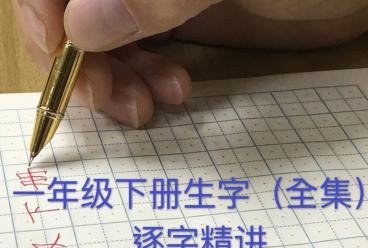 一年级下册生字（全集）
逐字精讲
下